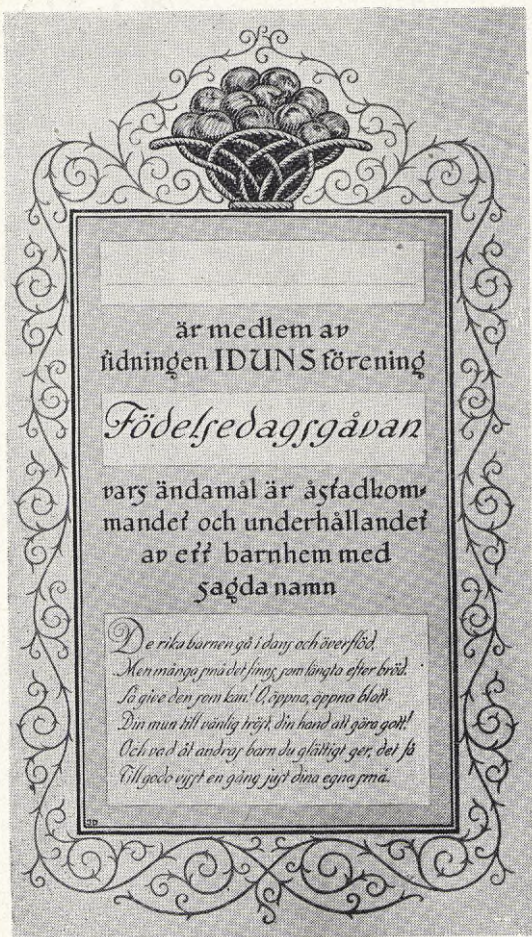 är medlem av
tidningen IDUNS förening
Födelsedagsgåvan
vars ändamål är åstadkom-
mandet och underhållandet
av ett barnhem med
sagda namn
De rika barnen gå i dans och överflöd,
Men många små det finns som längta efter bröd.
Så give den som kan! O, öppna, öppna blott
Din mun till vänlig tröst, din hand att göra gott!
Och vad åt andras barn du glättigt ger, det få
Till godo visst en gång just dina egna små.